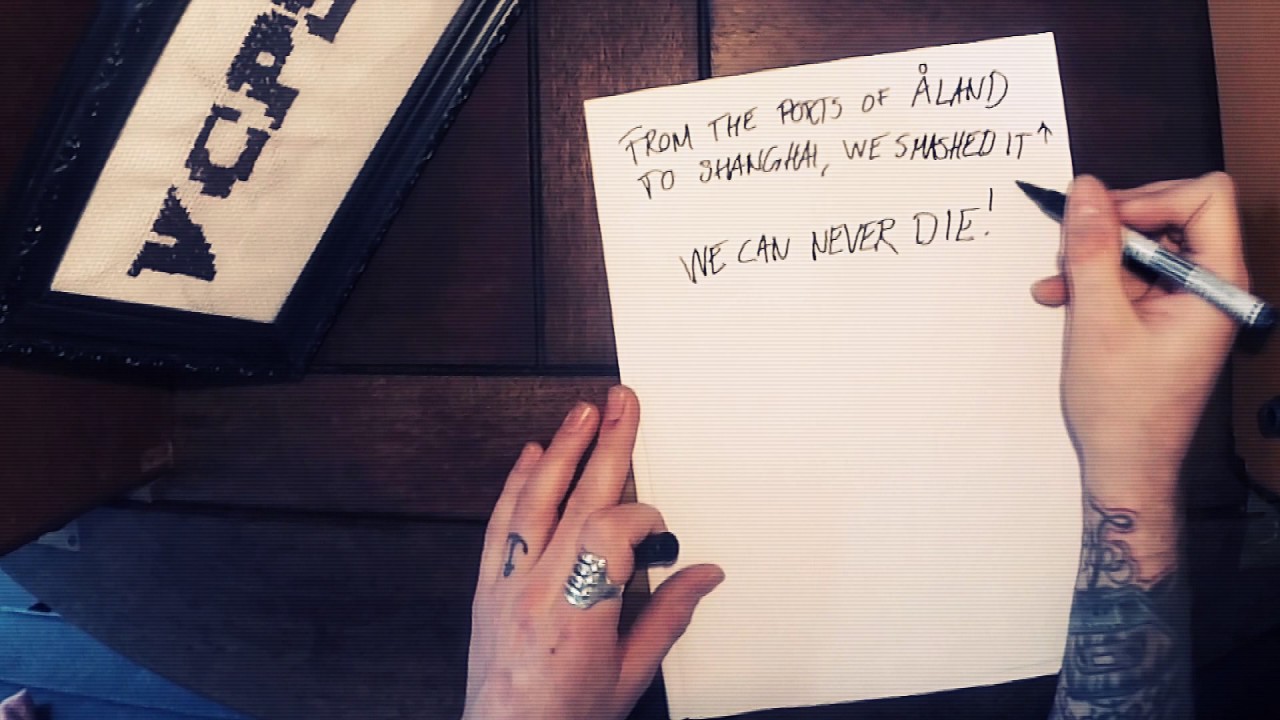 VCPS
FROM THE PORTS OF ÅLAND
TO SHANGHAI, WE SMASHED IT ↑
WE CAN NEVER DIE!